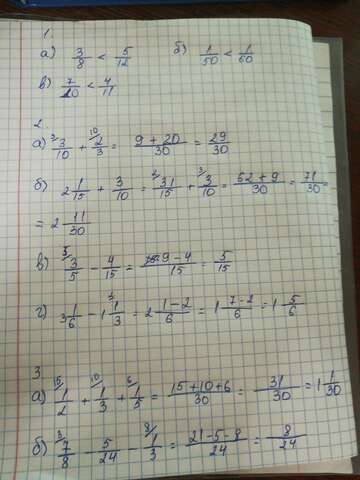 1.
а) 3/8 < 5/12 б) 1/50 < 1/60
в) 7/20 < 4/11
2.
а) ³⁄ 3/10 + ¹⁰⁄ 2/3 = 9+20/30 = 29/30
б) 2 1/15 + 3/10 = ²⁄ 31/15 + ³⁄ 3/10 = 62+9/30 = 71/30 =
= 2 11/30
в) ³⁄ 3/5 - 4/15 = 9-4/15 = 5/15
г) 3 1/6 - 1 ³⁄ 1/3 = 2 1-2/6 = 1 7-2/6 = 1 5/6
3.
а) ¹⁵⁄ 1/2 + ¹⁰⁄ 1/3 + ⁶⁄ 1/5 = 15+10+6/30 = 31/30 = 1 1/30
б) ³⁄ 7/8 - 5/24 - ⁸⁄ 1/3 = 21-5-8/24 = 8/24